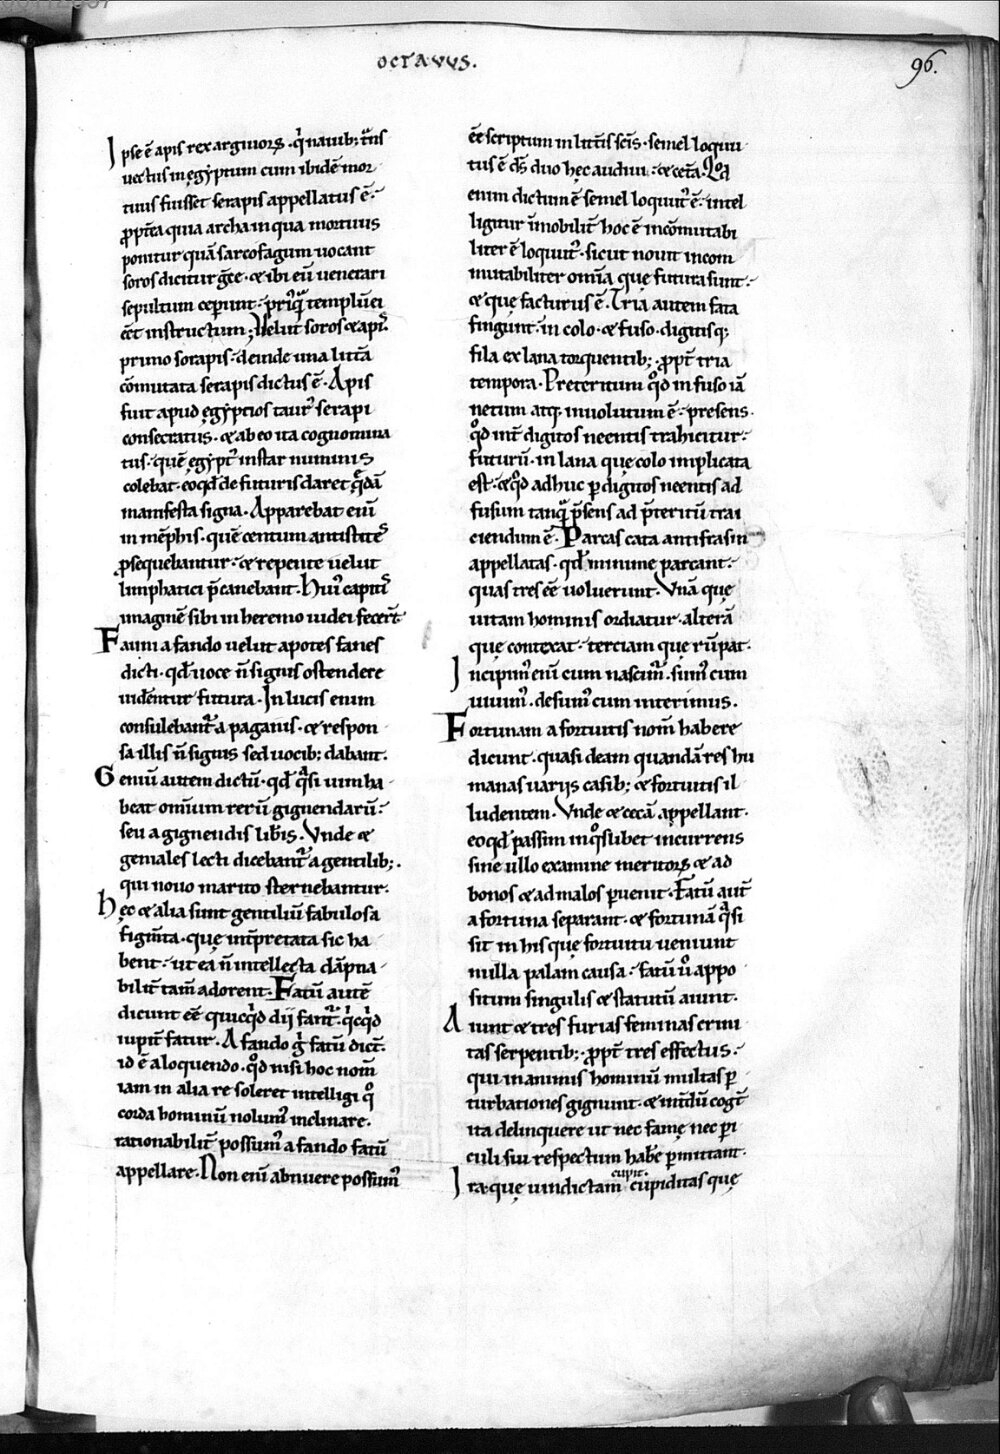 OCTAVVS.
96.
Ipse ē apis rex argiuorꝝ · q̇ nauib; t̄ns
uectus in ęgyptum cum ibidē mor
tuus fuisset serapis appellatus ē ·
ꝓpt̄ea quia archa in qua mortuus
ponitur quā sarcofagum uocant
soros dicitur gr̄ce · & ibi eū uenerari
sepultum ceperunt · priꝰq̄ templū ei
eēt instructum ; Velut soros & apiˢ·
primo sorapis · deinde una litt̄a
cōmutata serapis dictus ē · Apis
fuit apud ęgyptios taurꝰ serapi
consecratus · & ab eo ita cognomina
tus · quē ęgyptꝰ instar numinis
colebat · eo qd̄ de futuris daret q̄dā
manifesta signa · Apparebat eni̅
in mēphis · quē centum antistiteˢ
ꝓsequebantur · & repente uelut
limphatici p̄canebant · Huiꝰ capitiˢ
imaginē sibi in heremo iudei fecer̄t
Fauni a fando uelut apotes fanes
dicti · qd̄ uoce n̄ signis ostendere
uidentur futura · In lucis enim
consulebant᷑ a paganis · & respon
sa illis n̄ signis sed uocib; dabant.
Geniū autem dictū · qd̄ q̄si uim ha
beat omnium rerū gignendarū ·
seu a gignendis lib̄is · Vnde &
geniales lecti dicebant᷑ a gentilib; .
qui nouo marito sternebantur.
Hęc & alia sunt gentiliū fabulosa
figm̄ta · quę int̄pretata sic ha
bent · ut ea n̄ intellecta dāpna
bilit̄ tam̄ adorent · Fatū autē
dicunt eē quicq̇d dii fant᷑ · q̇cq̇d
iupit̄ fatur · A fando g̊ fatū dict̄·
id ē a loquendo · qd̄ nisi hoc nom̄
iam in alia re soleret intelligi qͦ
corda hominū nolumꝰ inclinare.
rationabilit̄ possumꝰ a fando fatū
appellare · Non eni̅ abnuere possumꝰ
eē scriptum in litt̄is sc̄is · semel locu
tus ē ds̄ duo hęc audiui · & cet̄a · Qd̄
enim dictum ē semel locut᷑ ē · intel
ligitur īmobilit̄ hoc ē incōmutabi
liter ē locut᷑ · sicut nouit incom
mutabiliter omīa quę futura sunt ·
& que facturus ē · Tria autem fata
fingunt · in colo · & fuso · digitisq;
fila ex lana torquentib; · ꝓpt̄ tria
tempora · Preteritum qd̄ in fuso iā
netum atq; inuolutum ē · presens·
qd̄ int̄ digitos neentis trahicitur ·
futurū · in lana quę colo implicata
est · & qd̄ adhuc ꝑ digitos neentis ad
fusum tanq̄ p̄sens ad p̄teritū trai
ciendum ē · Parcas cata antifrasin
appellatas · qd̄ minime parcant ·
quas tres eē uoluerunt · Vnā que
uitam hominis ordiatur · alterā
quę contexat · terciam quę rūpat·
Incipimꝰ eni̅ cum nascimur · sumꝰ cum
uiuimꝰ · desumꝰ cum interimus.
Fortunam a fortuitis nom̄ habere
dicunt · quasi deam quandā res hu
manas uariis casib; & fortuitis il
ludentem · Vnde & cecā appellant ·
eo qd̄ passim in q̄slibet incurrens
sine ullo examine meritorꝝ & ad
bonos & ad malos ꝑuenit · Fatū aut̄
a fortuna separant · & fortunā q̄si
sit in his que fortuitu ueniunt
nulla palam causa · fatū u̅o appo
situm singulis & statutū aiunt.
Aiunt & tres furias feminas crini
tas serpentib; · ꝓpt̄ tres effectus ·
qui in animis hominū multas ꝑ
turbationes gignunt · & int̄dū cogt̄
ita delinquere ut nec famę nec ꝑi
culi sui respectum habe̅ ꝑmittant.
cupit.
Ira · quę uindictam cupiditas quę